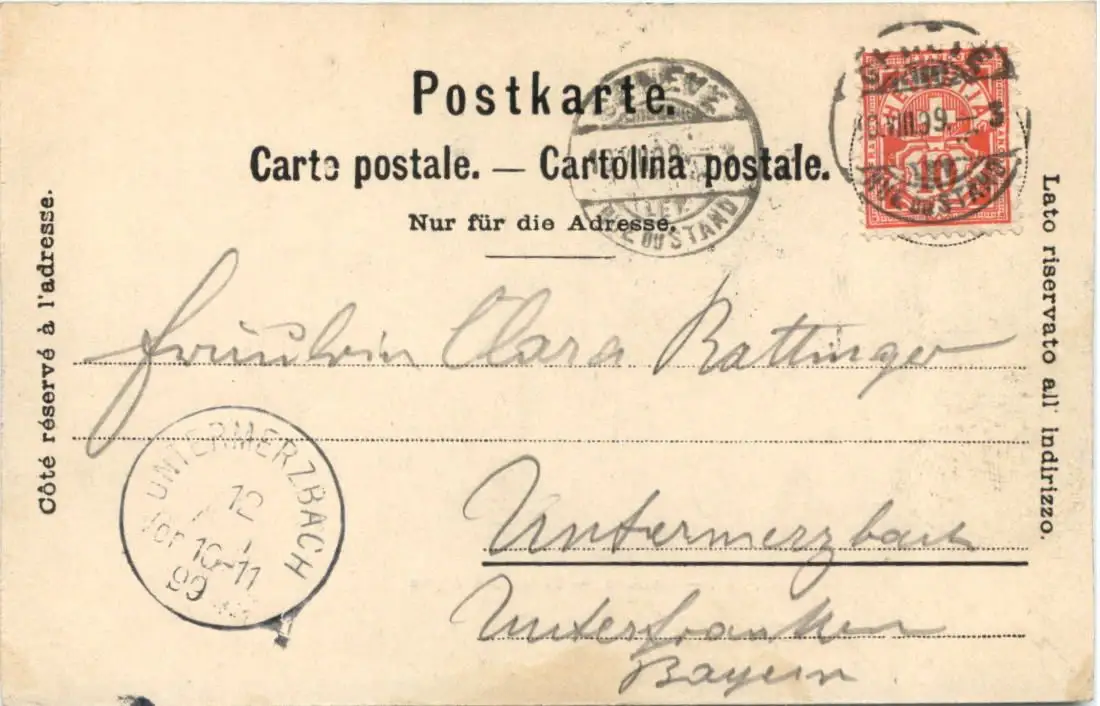 Postkarte.
Carte postale. — Cartolina postale.
Nur für die Adresse.
Côté réservé à l'adresse.
Lato riservato all' indirizzo.
GENÈVE
RUE DU STAND
HELVETIA
10
VIII.99. — 3
RUE DU STAND
Fräulein Clara Rattinger
UNTERMERZBACH
12
Vor 10-11
99
Untermerzbach
Unterfranken
Bayern